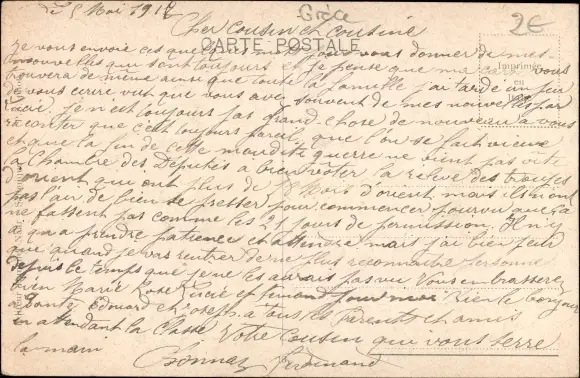 Le 5 Mai 1918
Grèce
2€
Cher Cousin et Cousine
CARTE POSTALE
Imprimée
en
Je vous envoie ces quelques mots pour vous donner de mes
nouvelles qui sont toujours et je pense que ma carte vous
trouvera de même ainsi que toute la famille j'ai tardé un peu
de vous écrire vut que vous avez souvent de mes nouvelles par
Lucie. Je n'est toujours pas grand chose de nouveau a vous
raconter que c'est toujours pareil que l'on se fait vieux
et que la fin de cette maudite guerre ne vient pas vite
la Chambre des Députés a bien voter la relève des troupes
d'orient qui ont plus de 18 Mois d'orient mais
pas l'air de bien se presser pour commencer pourvu que
ne fassent pas comme les 21 jours de permission, Il n'y
a qu'a prendre patience et attendre mais j'ai bien peur
que quand je vais rentrer de ne plus reconnaitre personne
depuis le temps que je ne les aurais pas vu Vous embrasserez
bien Marie Rose Lucie et Fernand pour moi Bien le bonjour
a Edouard et Joseph a tous les Parents et amis
en attendant la Classe Votre Cousin qui vous serre
la main
Ferdinand